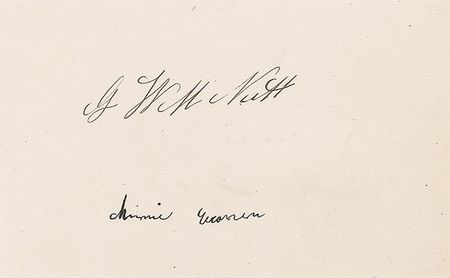 G W M Nutt
Minnie Warren